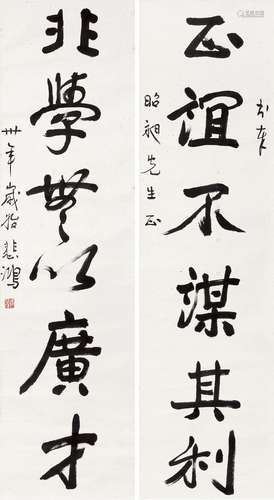 正誼不謀其利
昭昶先生正
非學無以廣才
卅年歲 悲鴻